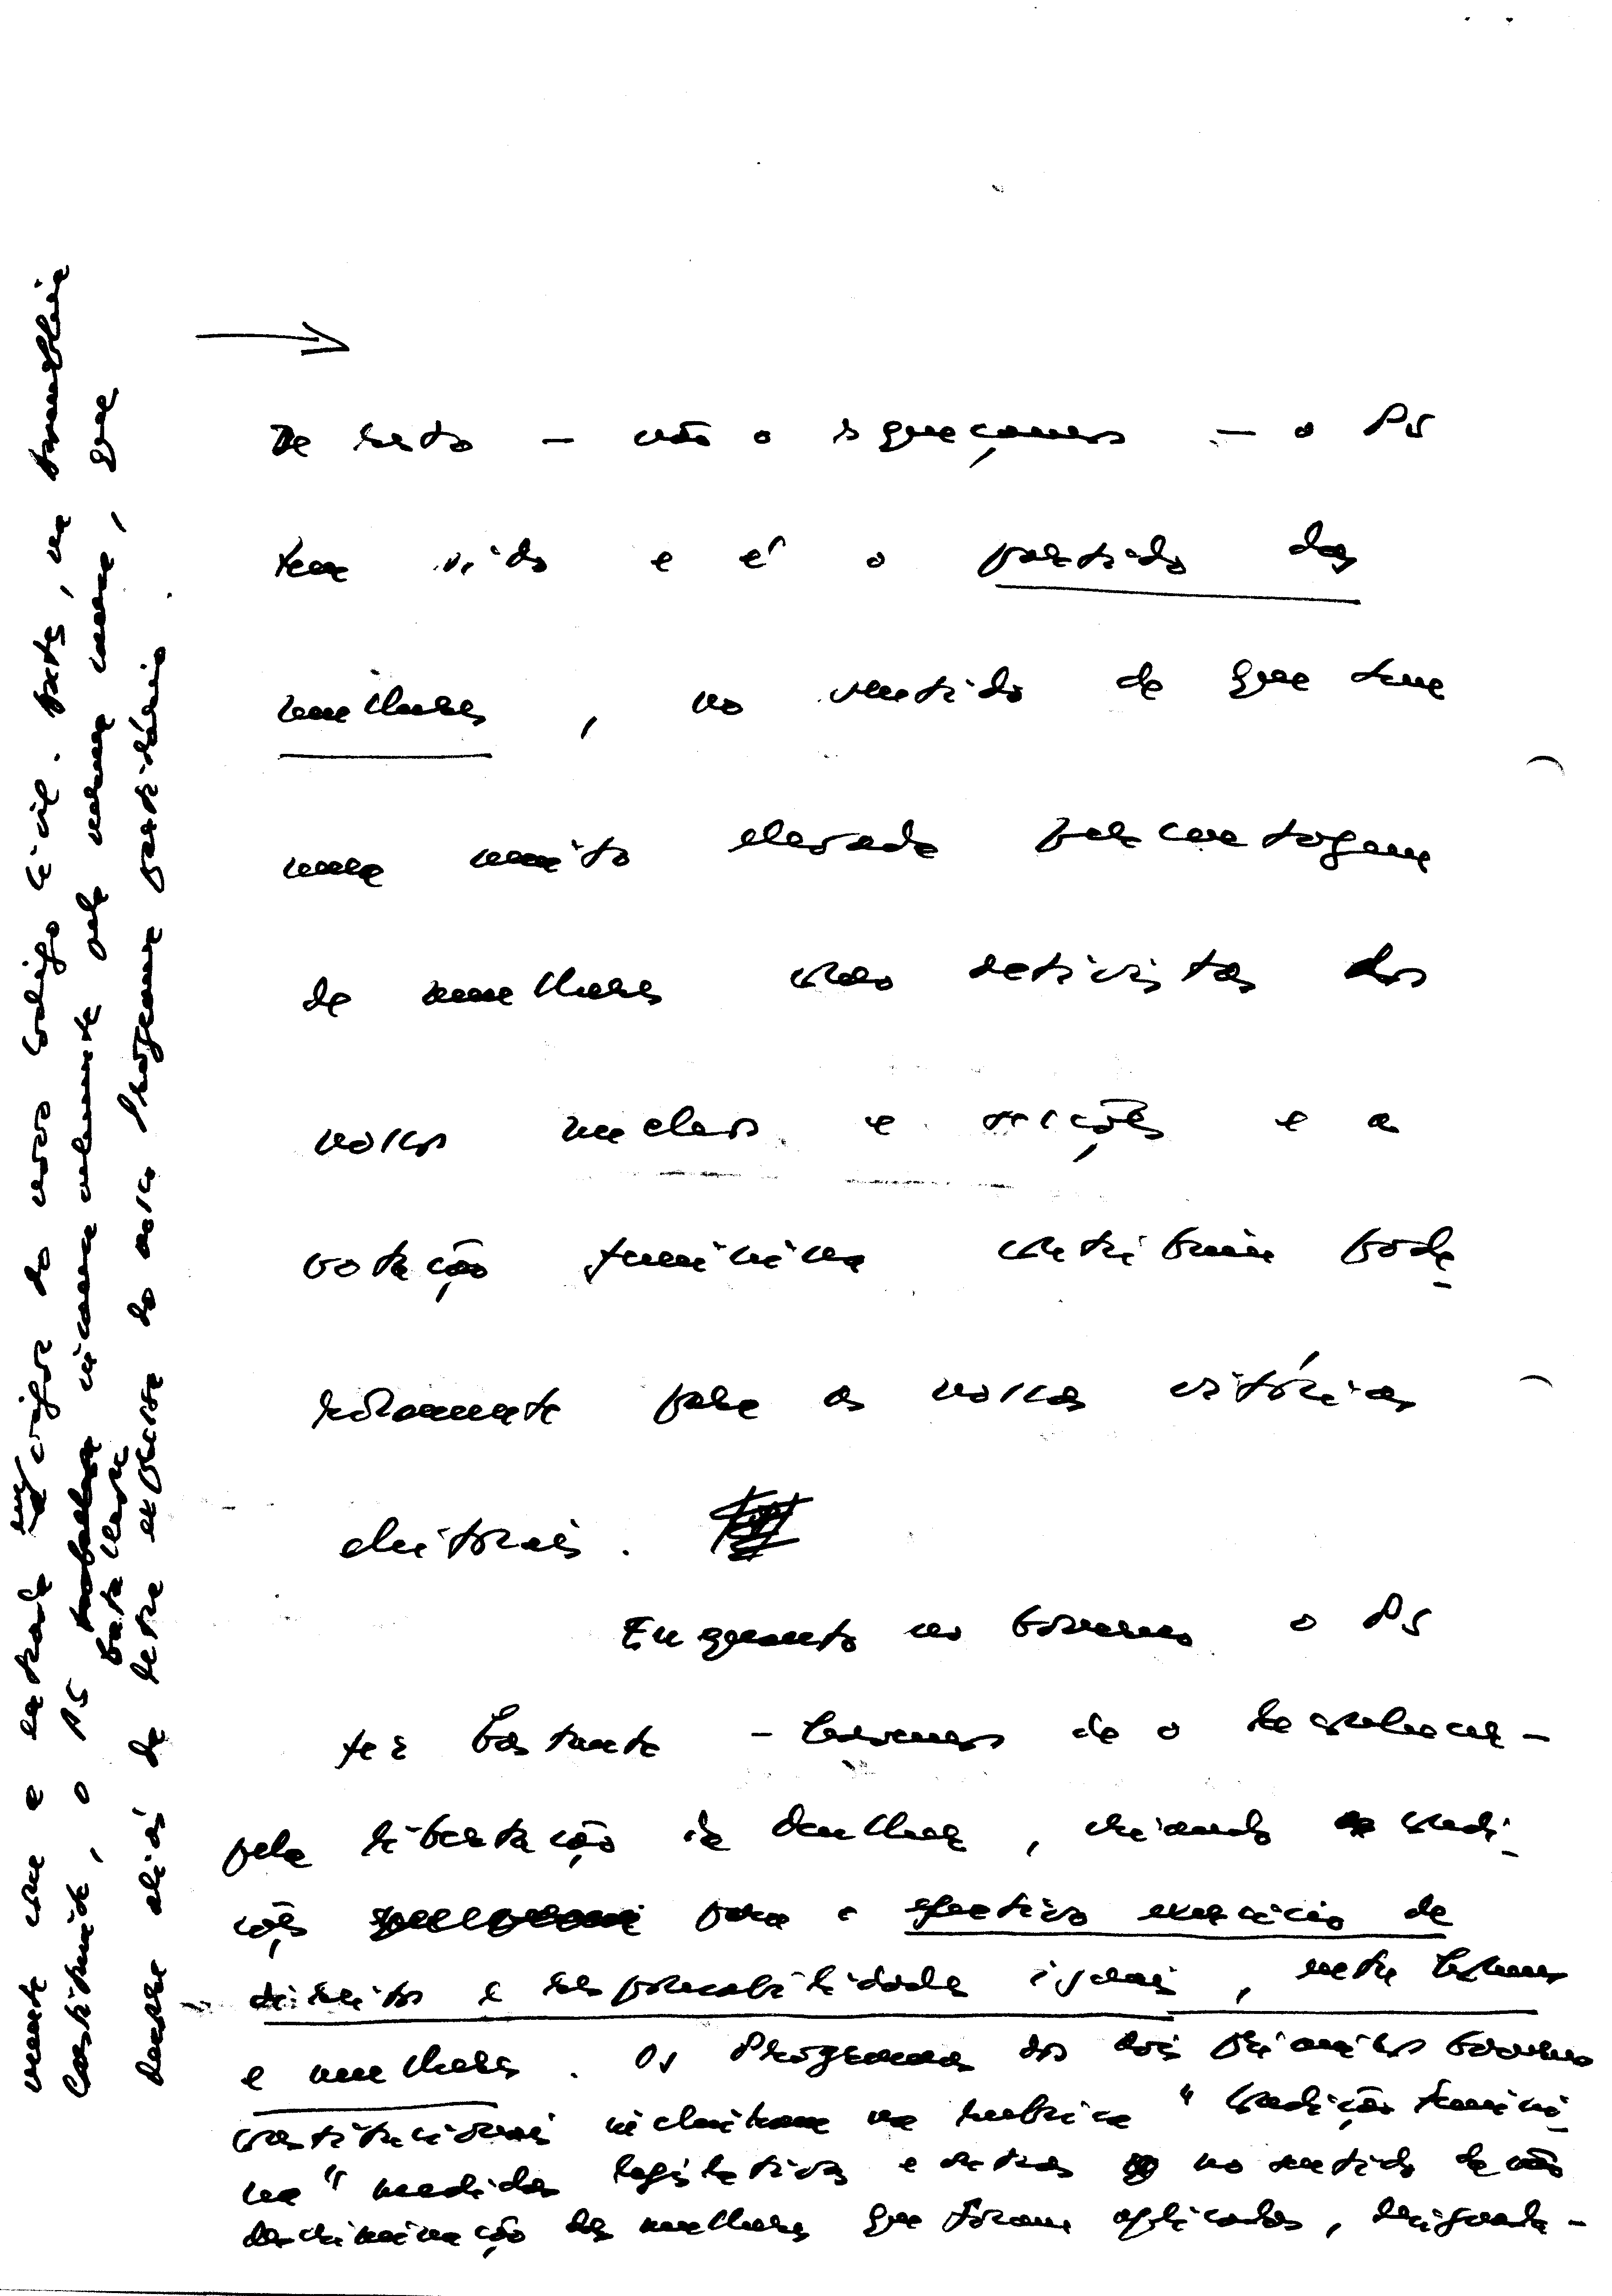 De resto - não o esqueçamos - o PS
tem sido e é o partido das
mulheres, no sentido de que tem
uma muito elevada percentagem
de mulheres como activistas dos
nossos nucleos e secções e a
votação feminina contribuiu pode-
rosamente para as nossas vitórias
eleitorais.
Enquanto no Governo o PS
fez bastante - havemos de o reconhecer -
pela libertação da Mulher, criando condi-
ções para o efectivo exercicio de
direitos e responsabilidades iguais, entre homens
e mulheres. Os Programas dos dois primeiros Governos
constitucionais incluiram na rubrica "condição femini-
na" medidas legislativas e outras no sentido da não
descriminação das mulheres que foram aplicadas, designada-
mente com a entrada em vigor do novo Código Civil. Mas, na Assembleia
Constituinte, o PS batalhou incansavelmente pela mesma causa, que
decorre aliás da letra expressa do nosso Programa partidário.